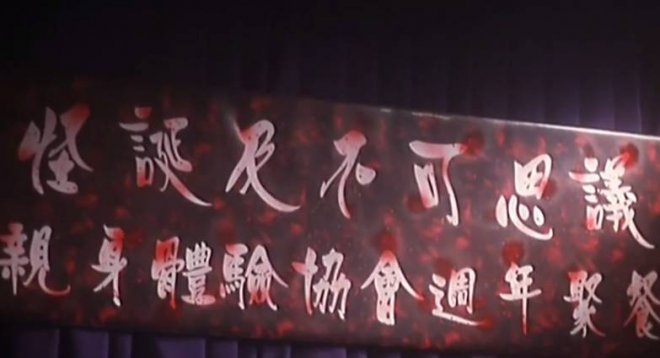 怪誕及不可思議
親身體驗協會週年聚餐